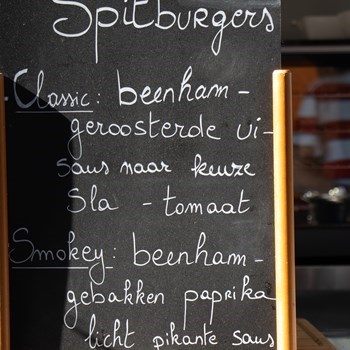 Spitburgers
Classic: beenham -
geroosterde ui -
saus naar keuze
Sla - tomaat
Smokey: beenham -
gebakken paprika
licht pikante saus